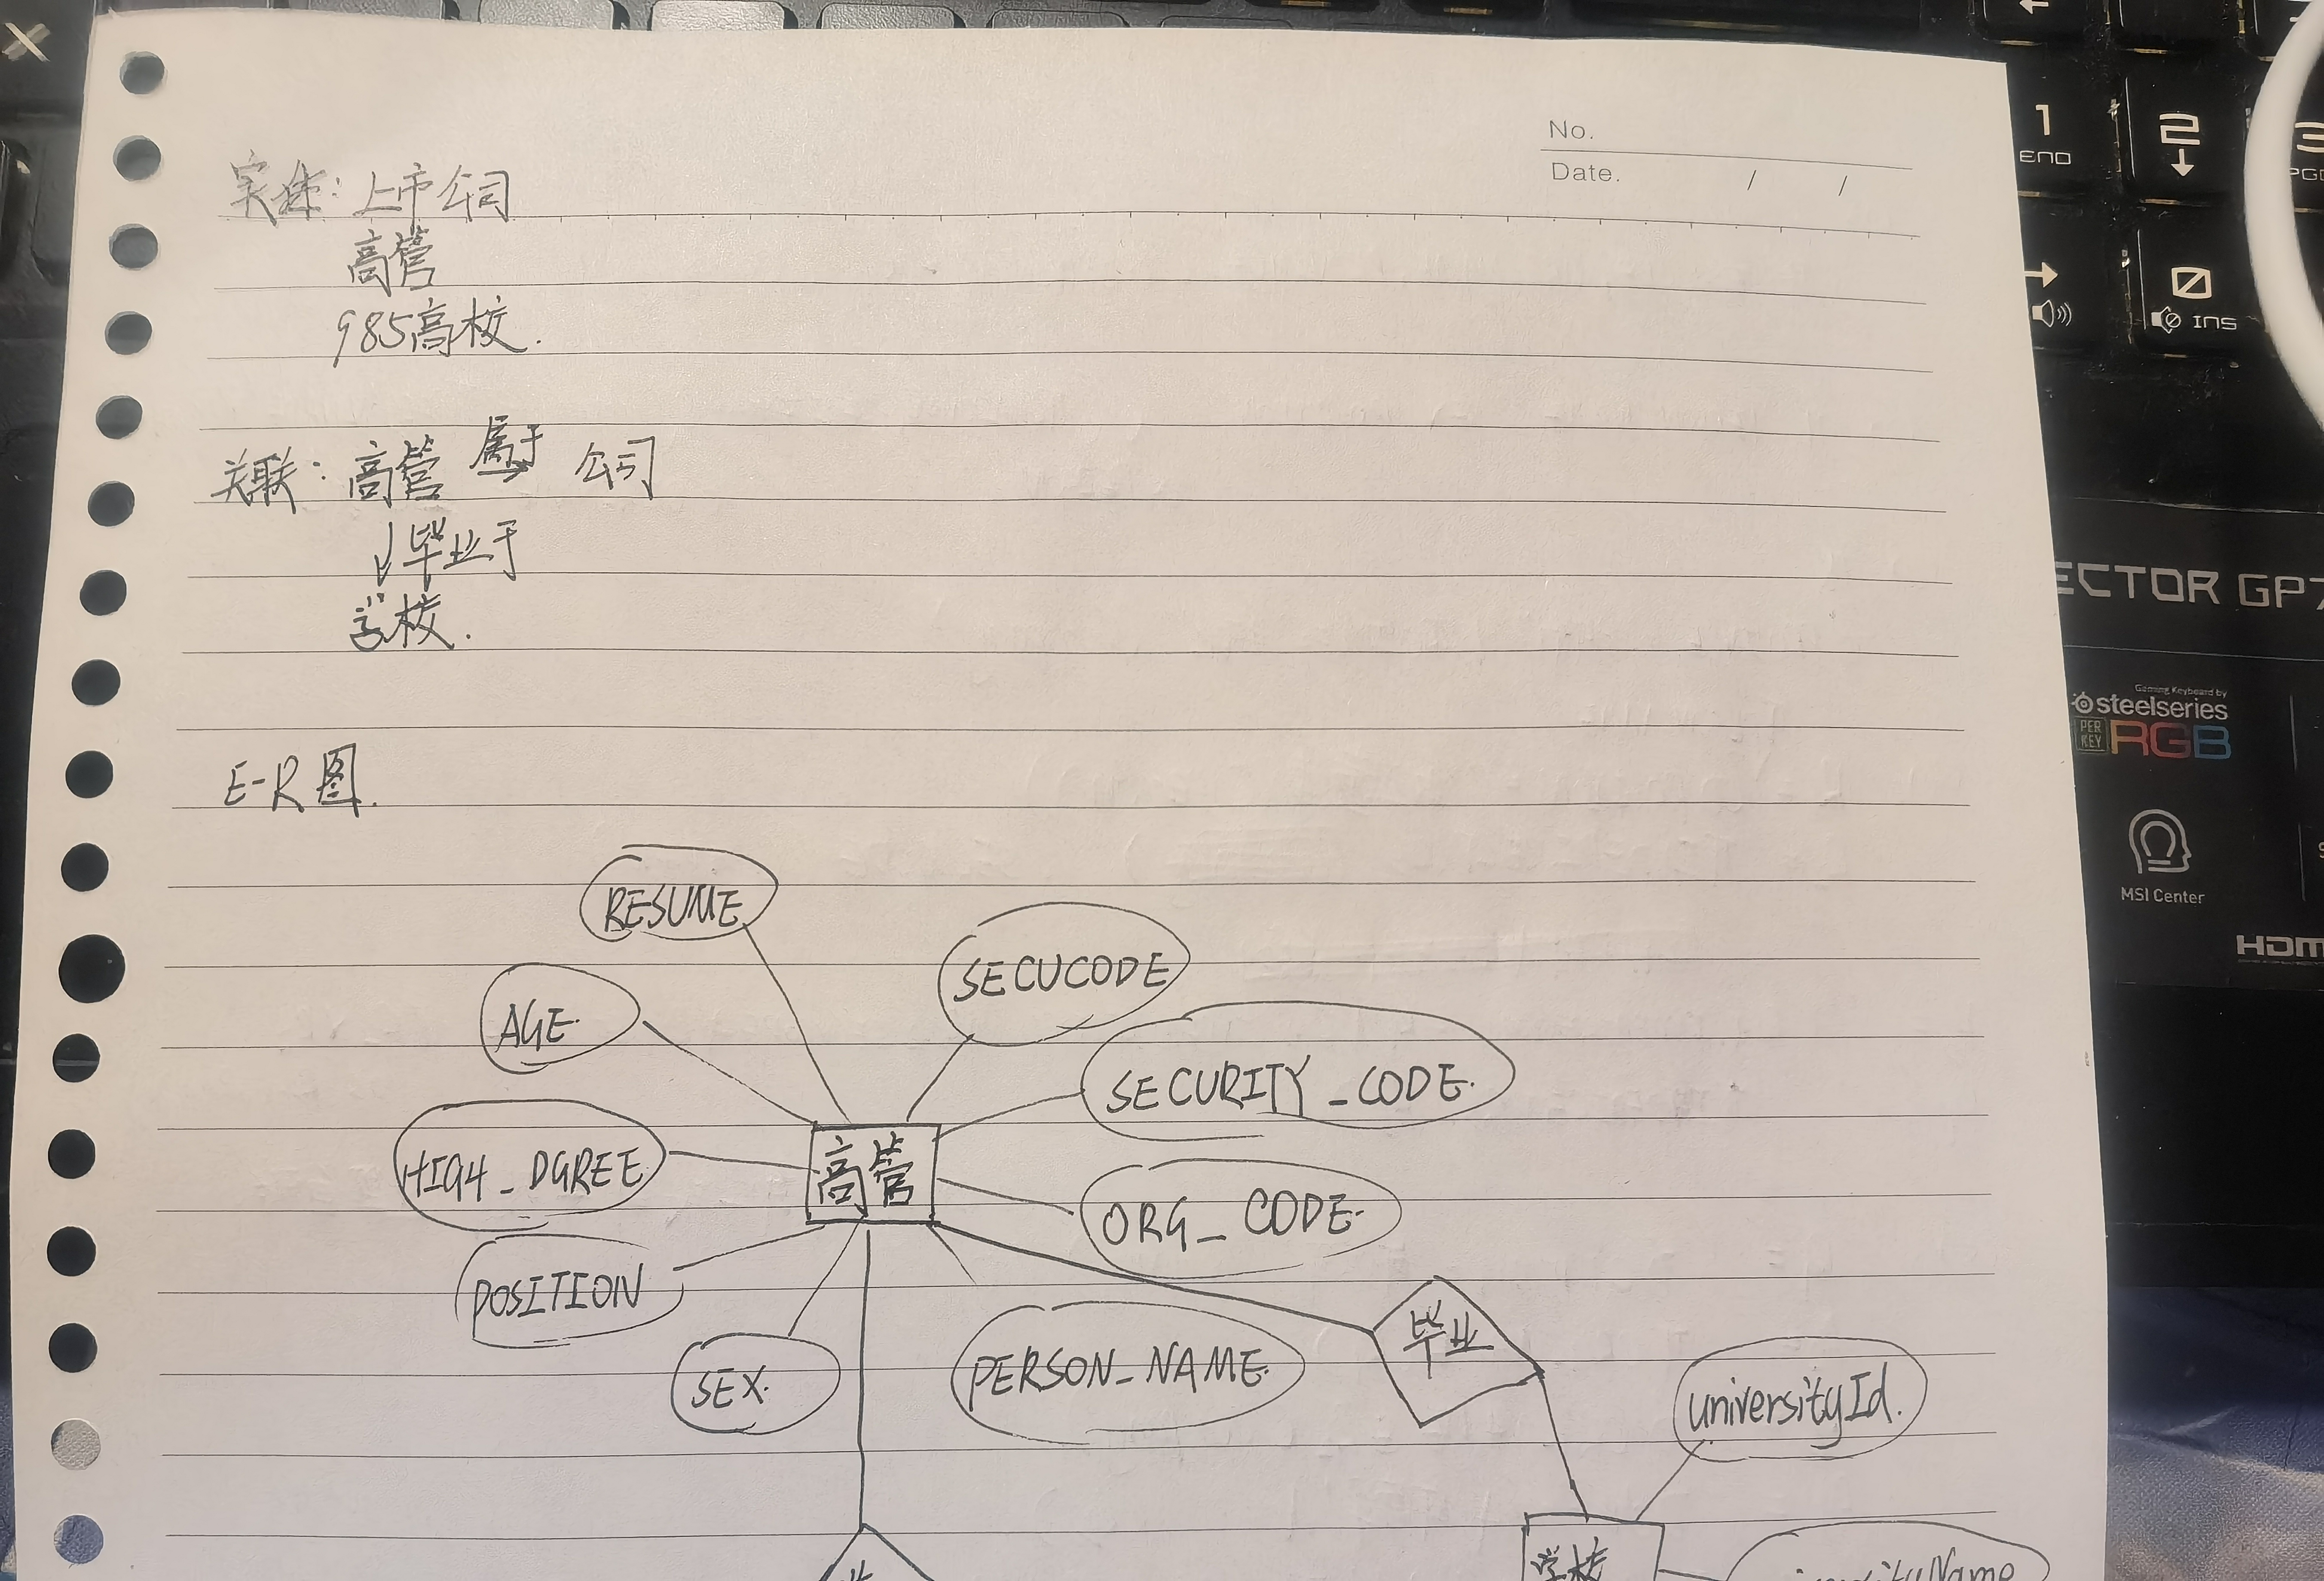 No.
Date. / /
实体: 上市公司
高管
985高校.
关联: 高管 属于 公司
毕业于
学校.
E-R图.
RESUME
SECUCODE
AGE
SECURITY_CODE
HIGH_DGREE
高管
ORG_CODE
POSITION
毕业
SEX
PERSON_NAME
universityId.
学校
1
END
2
INS
ECTOR GP7
Gaming Keyboard by
steelseries
PER KEY RGB
MSI Center
HDM